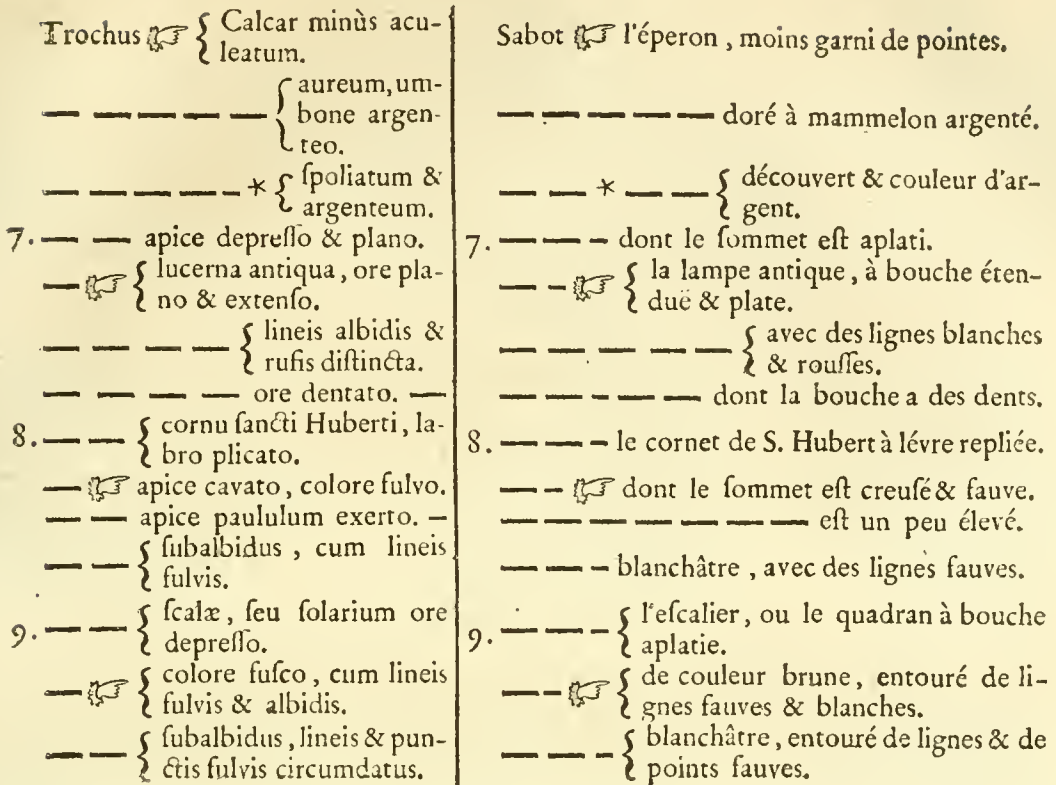 Trochus ☞ { Calcar minùs acu-
leatum.
— — — — — { aureum, um-
bone argen-
teo.
— — — — — * { ſpoliatum &
argenteum.
7. — — apice depreſſo & plano.
— ☞ { lucerna antiqua, ore pla-
no & extenſo.
— — — — { lineis albidis &
rufis diſtincta.
— — — — ore dentato. —
8. — — { cornu ſancti Huberti, la-
bro plicato.
— ☞ apice cavato, colore fulvo.
— — apice paululum exerto. —
— — { ſubalbidus, cum lineis
fulvis.
9. — — { ſcalæ, ſeu ſolarium ore
depreſſo.
— ☞ { colore fuſco, cum lineis
fulvis & albidis.
— — { ſubalbidus, lineis & pun-
ctis fulvis circumdatus.
Sabot ☞ l'éperon, moins garni de pointes.
— — — — — — doré à mammelon argenté.
— — * — — { découvert & couleur d'ar-
gent.
7. — — — – dont le ſommet eſt aplati.
— – ☞ { la lampe antique, à bouche éten-
duë & plate.
— — — — — — { avec des lignes blanches
& rouſſes.
— — – — — dont la bouche a des dents.
8. — — — – le cornet de S. Hubert à lévre repliée.
— – ☞ dont le ſommet eſt creuſé & fauve.
— — — — — — — — eſt un peu élevé.
— — – blanchâtre, avec des lignes fauves.
9. — — — – { l'eſcalier, ou le quadran à bouche
aplatie.
— – ☞ { de couleur brune, entouré de li-
gnes fauves & blanches.
— — – { blanchâtre, entouré de lignes & de
points fauves.